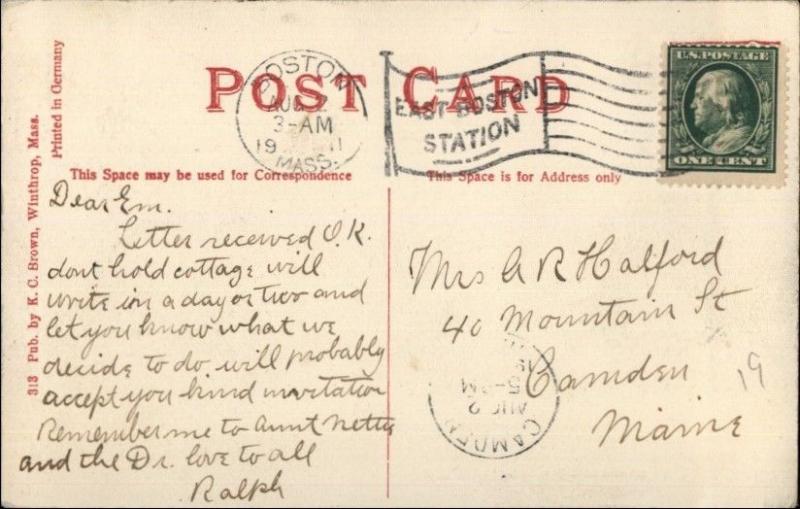 POST CARD
BOSTON
AUG 2
3-AM
19 11
MASS.
EAST BOSTON
STATION
U.S. POSTAGE
ONE CENT
This Space may be used for Correspondence
This Space is for Address only
313 Pub. by K. C. Brown, Winthrop, Mass.
Printed in Germany
Dear Em.
Letter received O.K.
dont hold cottage will
write in a day or two and
let you know what we
decide to do. will probably
accept you kind invitation
Remember me to Aunt Nettie
and the Dr. love to all
Ralph
Mrs A R Halford
40 Mountain St
Camden
Maine
19
CAMDEN
AUG 2
5-PM